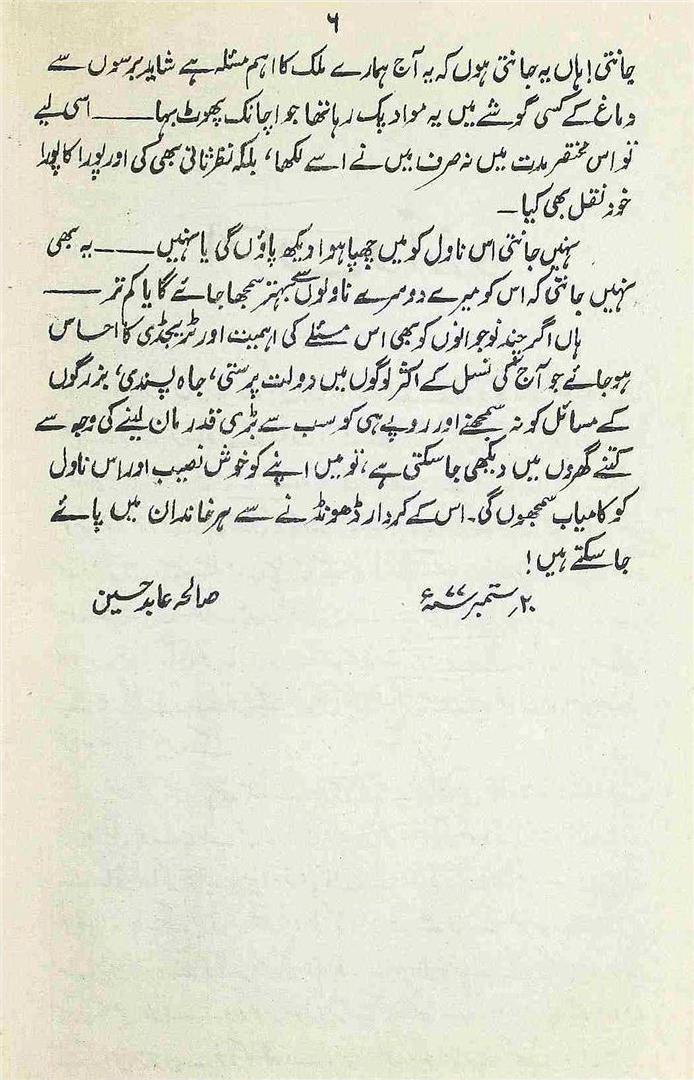 ۶
جانتی! ہاں یہ جانتی ہوں کہ یہ آج ہمارے ملک کا اہم مسئلہ ہے شاید برسوں سے
دماغ کے کسی گوشے میں یہ مواد پک رہا تھا جو اچانک پھوٹ بہا ــــــ اسی لیے
تو اس مختصر مدت میں نہ صرف میں نے اسے لکھا، بلکہ نظر ثانی بھی کی اور پورا کا پورا
خود نقل بھی کیا ـ
نہیں جانتی اس ناول کو میں چھپا ہوا دیکھ پاؤں گی یا نہیں ــــــ یہ بھی
نہیں جانتی کہ اس کو میرے دوسرے ناولوں سے بہتر سمجھا جائے گا یا کم تر ــــــ
ہاں اگر چند نوجوانوں کو بھی اس مسئلے کی اہمیت اور ٹریجڈی کا احساس
ہو جائے جو آج کی نسل کے اکثر لوگوں میں دولت پرستی، جاہ پسندی، بزرگوں
کے مسائل کو نہ سمجھنے اور روپے ہی کو سب سے بڑی قدر مان لینے کی وجہ سے
کتنے گھروں میں دیکھی جا سکتی ہے، تو میں اپنے کو خوش نصیب اور اس ناول
کو کامیاب سمجھوں گی۔ اس کے کردار ڈھونڈنے سے ہر خاندان میں پائے
جا سکتے ہیں!
۲۰؍ ستمبر ۷۷ء صالحہ عابد حسین